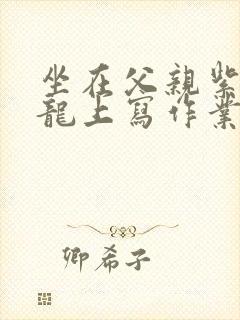 坐在父親紫
龍上寫作業
卿希子